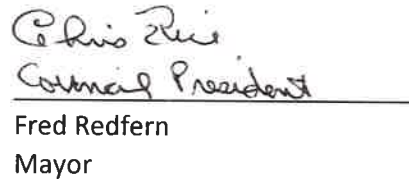 Chris Rice
Council President
Fred Redfern
Mayor